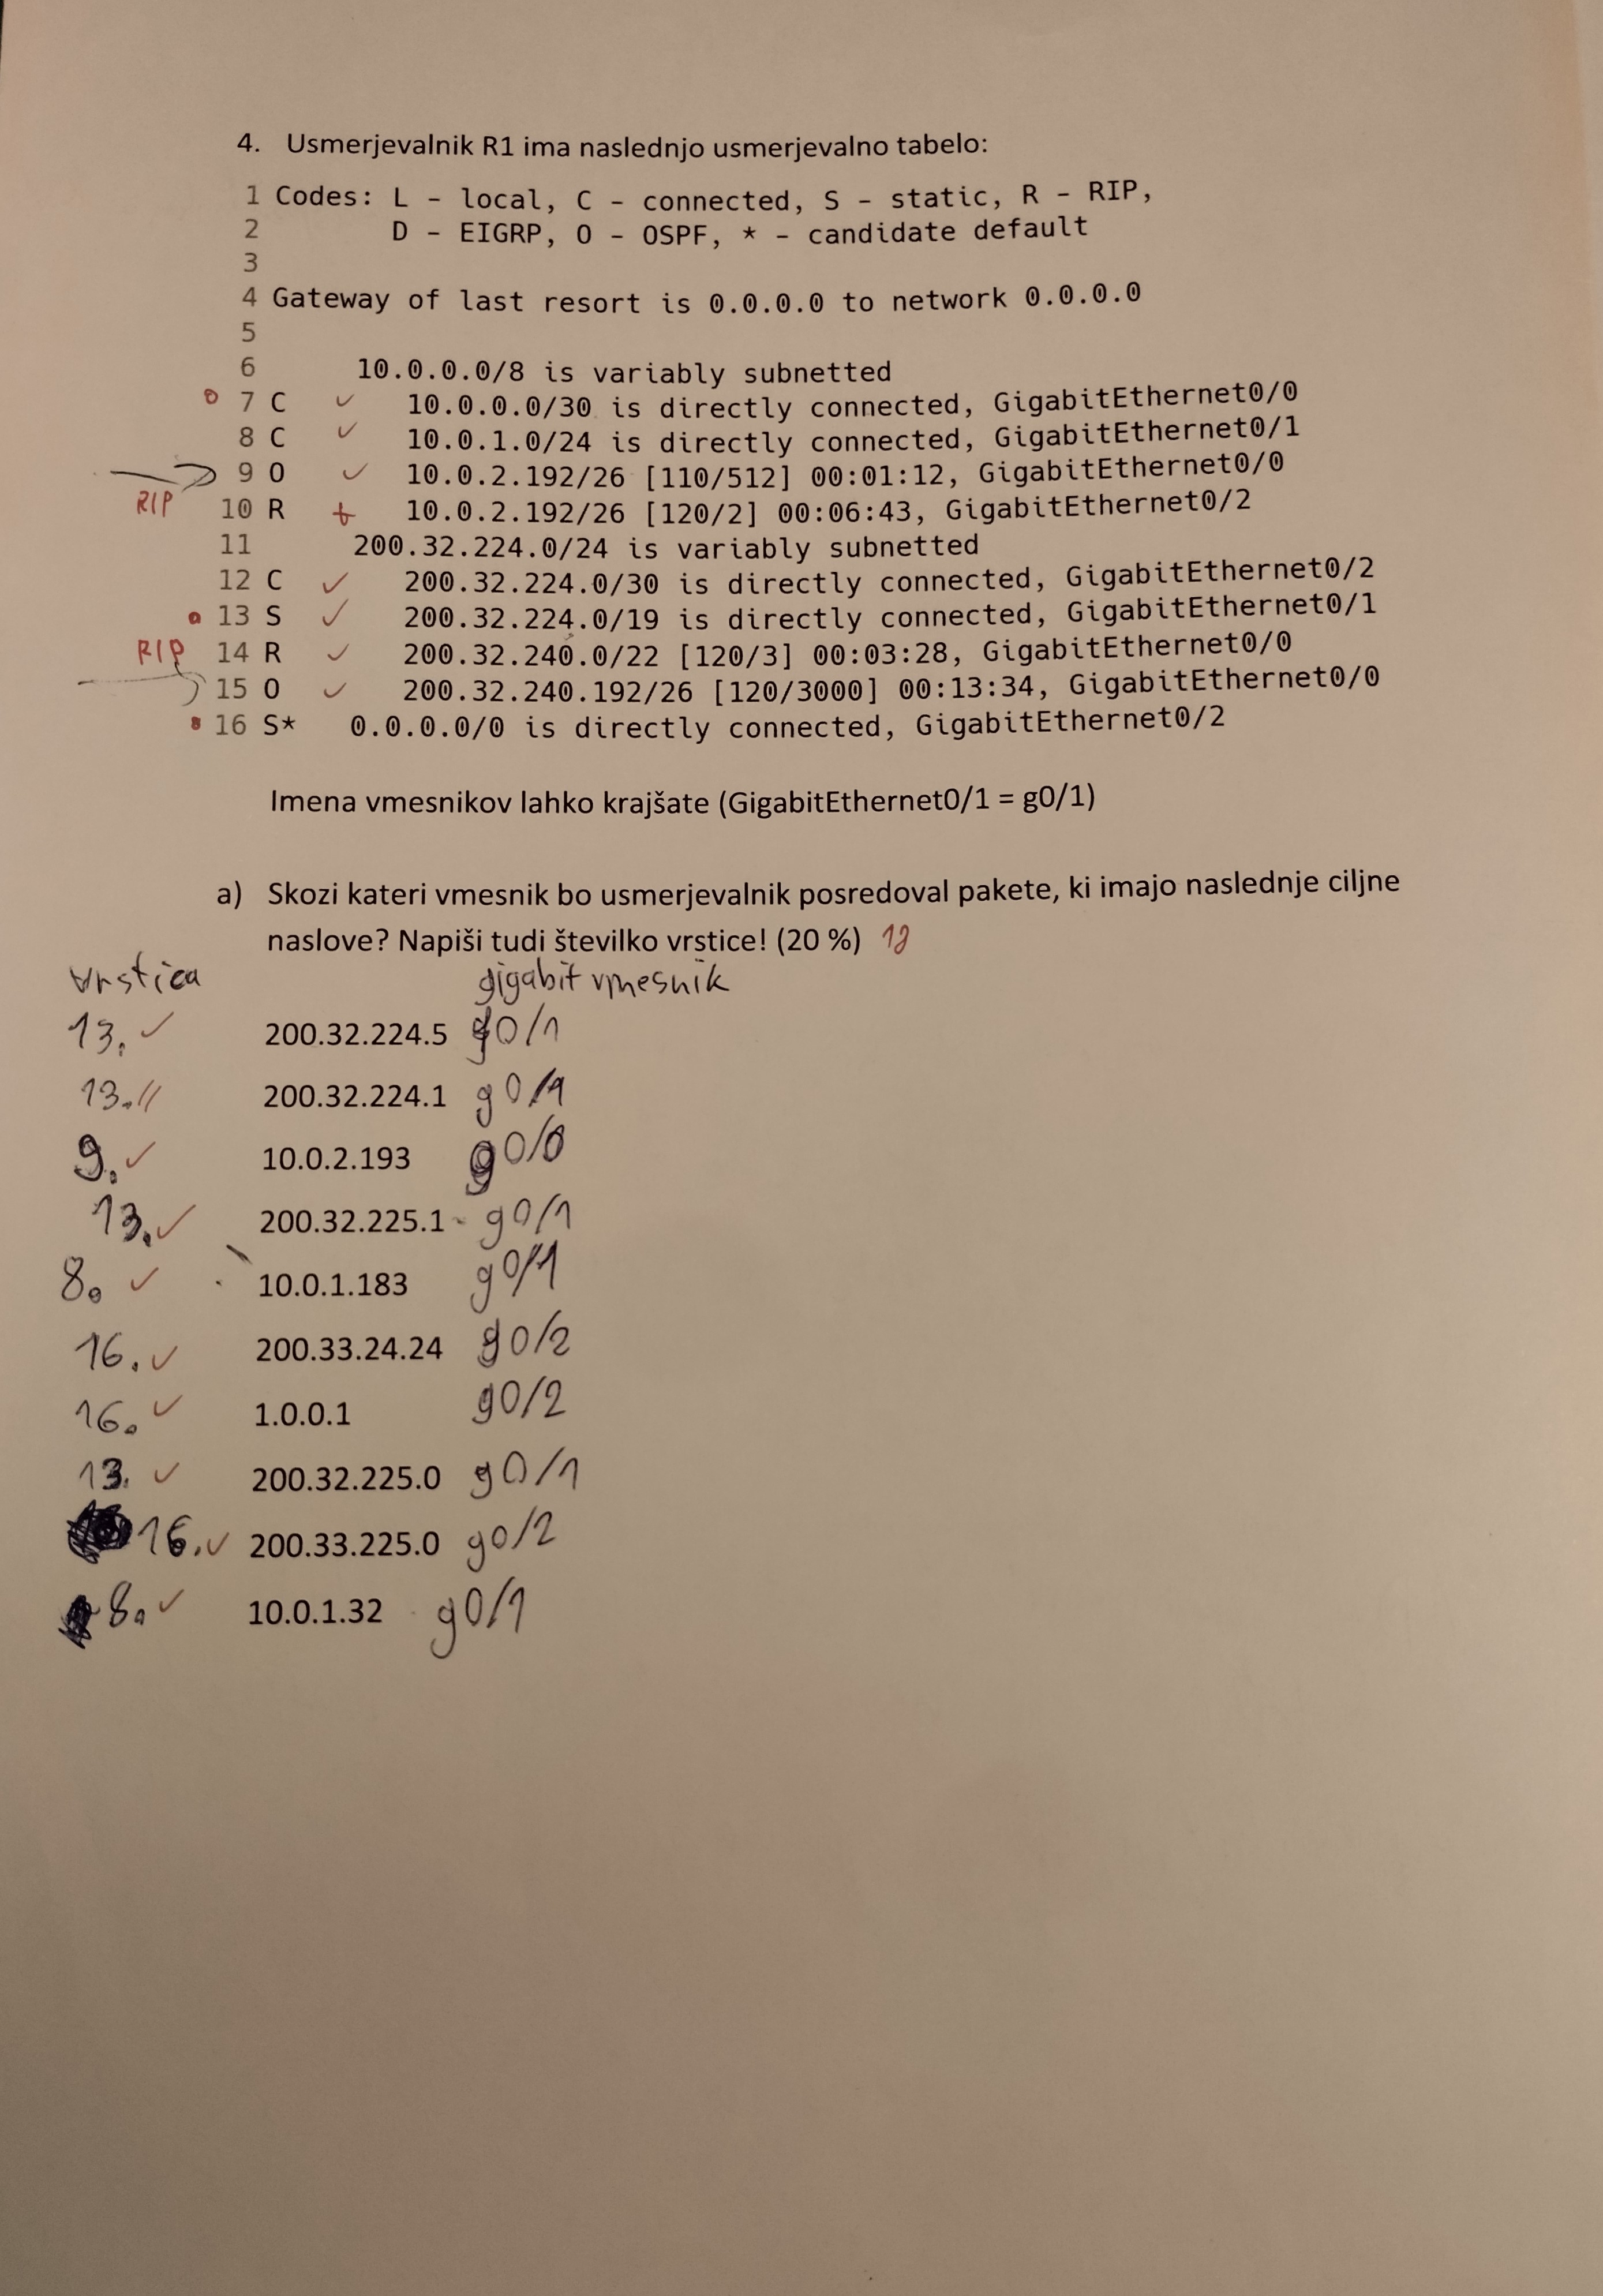 4. Usmerjevalnik R1 ima naslednjo usmerjevalno tabelo:
1 Codes: L - local, C - connected, S - static, R - RIP,
2 D - EIGRP, O - OSPF, * - candidate default
3
4 Gateway of last resort is 0.0.0.0 to network 0.0.0.0
5
6 10.0.0.0/8 is variably subnetted
7 C ✓ 10.0.0.0/30 is directly connected, GigabitEthernet0/0
8 C ✓ 10.0.1.0/24 is directly connected, GigabitEthernet0/1
9 O ✓ 10.0.2.192/26 [110/512] 00:01:12, GigabitEthernet0/0
RIP 10 R + 10.0.2.192/26 [120/2] 00:06:43, GigabitEthernet0/2
11 200.32.224.0/24 is variably subnetted
12 C ✓ 200.32.224.0/30 is directly connected, GigabitEthernet0/2
13 S ✓ 200.32.224.0/19 is directly connected, GigabitEthernet0/1
RIP 14 R ✓ 200.32.240.0/22 [120/3] 00:03:28, GigabitEthernet0/0
15 O ✓ 200.32.240.192/26 [120/3000] 00:13:34, GigabitEthernet0/0
16 S* 0.0.0.0/0 is directly connected, GigabitEthernet0/2
Imena vmesnikov lahko krajšate (GigabitEthernet0/1 = g0/1)
a) Skozi kateri vmesnik bo usmerjevalnik posredoval pakete, ki imajo naslednje ciljne
naslove? Napiši tudi številko vrstice! (20 %)
vrstica gigabit vmesnik
13. ✓ 200.32.224.5 g0/1
13. // 200.32.224.1 g0/1
9. ✓ 10.0.2.193 g0/0
13. ✓ 200.32.225.1 g0/1
8. ✓ 10.0.1.183 g0/1
16. ✓ 200.33.24.24 g0/2
16. ✓ 1.0.0.1 g0/2
13. ✓ 200.32.225.0 g0/1
16. ✓ 200.33.225.0 g0/2
8. ✓ 10.0.1.32 g0/1